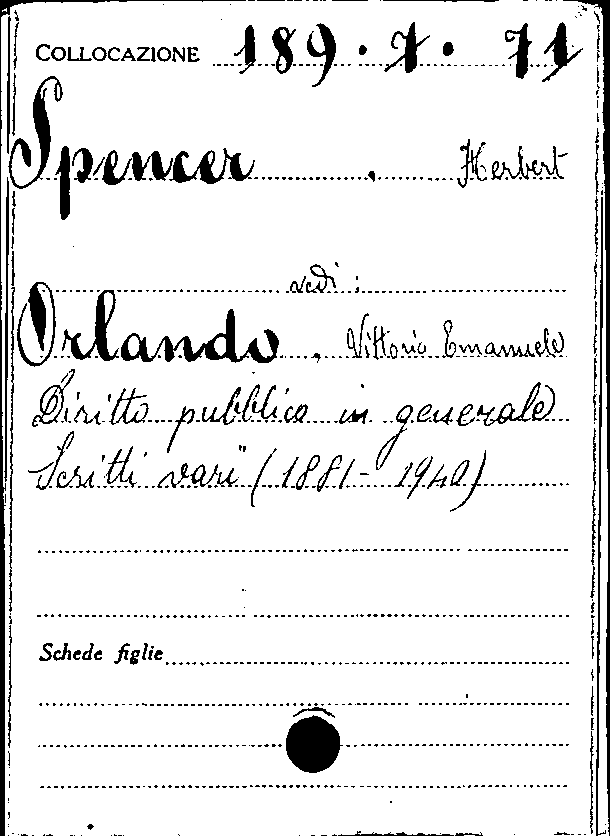 COLLOCAZIONE 189.7.71
Spencer . Herbert
vedi :
Orlando, Vittorio Emanuele
Diritto pubblico in generale
Scritti varii (1881-1940)
Schede figlie